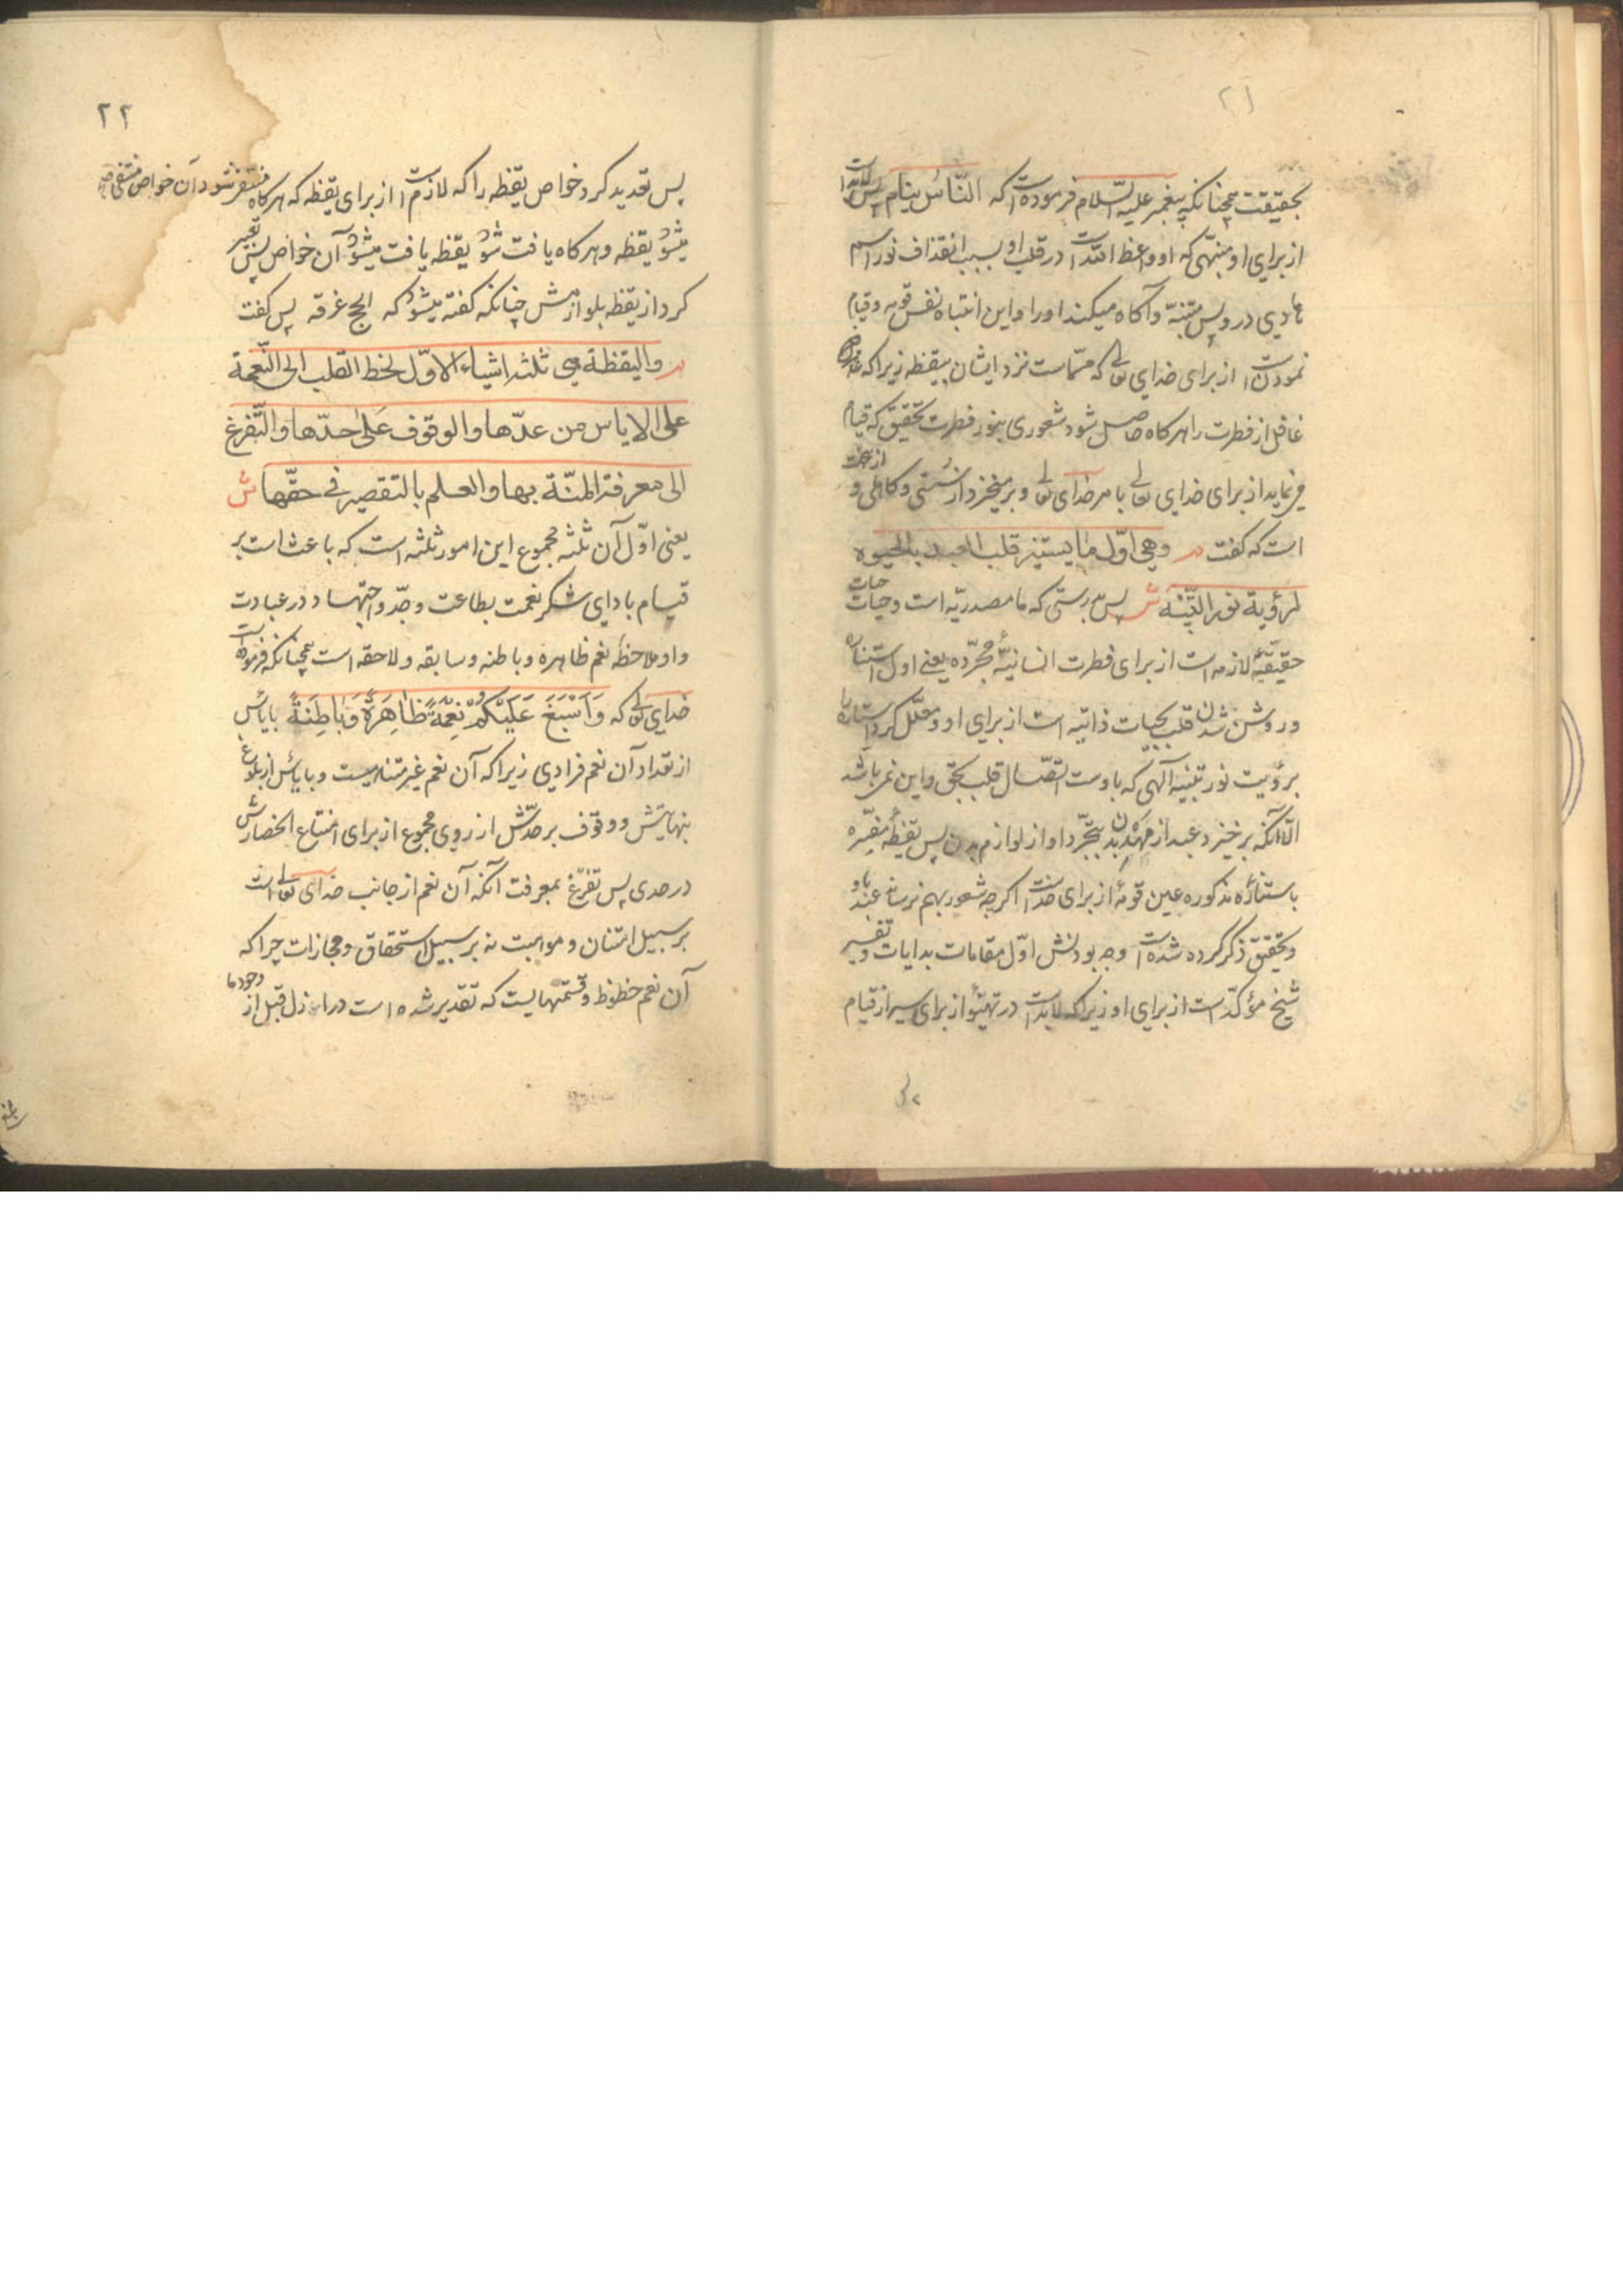 ۲۱
بحقیقت همچنانکه پیغمبر علیه السّلام فرموده است که النّاس ینام پس لابدّ است
از برای او منبّهی که او واعظ اللّه است در قلب او بسبب انقذاف نور اسم
هادی در وپس متنبّه و آکاه میکند او را و این انتباه نفس قومه و قیام
نمودن است از برای خدای تعالی که مسمّاست نزد ایشان بیقظه زیرا که
غافل از فطرت را هرکاه حاصل شود شعوری بنور فطرت تحقیق که قیام
می نماید از برای خدای تعالی بامر خدای تعالی و برمیخیزد از سُستی و کاهلی و از
است که کفت م وهی اوّل ما یستنیر قلب العبد بالحیوه
لرؤیة نور التنبیه ش پس بدرستی که ما مصدریّه است و حیات حیات
حقیقیّهٔ لازمه است از برای فطرت انسانیّهٔ مجرّده یعنی اول استناره
و روشن شدن قلب بحیات ذاتیه است از برای او و معلّل کرد استناره را
برؤیت نور تنبیه الهی که باوست اتّصال قلب بحق و این نمی باشد
الّا آنکه برخیزد عبد از مهد بدن بتجرّد او از لوازم بدن پس یقظهٔ مفسّره
باستنارهٔ مذکوره عین قومهٔ از برای خداست اکرچه شعور بهم نرساند عبد باو
و تحقیق ذکر کرده شده است وجه بودنش اوّل مقامات بدایات و تفسیر
شیخ مؤکدّ است از برای او زیرا که لابدّ است در تهیّؤ از برای سیر از قیام
۲۲
پس تعدید کرد خواص یقظه را که لازم است از برای یقظه که هرکاه منتفی شود آن خواص منتفی
میشود یقظه و هرکاه یافت شود یقظه یافت میشود آن خواص پس تعبیر
کرد از یقظه بلوازمش چنانکه کفته میشود که الحج عرفه پس کفت
م والیقظة هی ثلثة اشیاء الاوّل لحظ القلب الی النّعمة
علی الایاس من عدّها والوقوف علی حدّها والتّفرغ
الی معرفة المنّة بها والعلم بالتقصیر فی حقّها ش
یعنی اوّل آن ثلثه مجموع این امور ثلثه است که باعث است بر
قیام بادای شکر نعمت بطاعت و جدّ و اجتهاد در عبادت
و او ملاحظهٔ نعم ظاهره و باطنه و سابقه و لاحقه است همچنانکه فرموده است
خدای تعالی که وَاَسْبَغَ عَلَیْکُمْ نِعَمَهُ ظَاهِرَةً وَبَاطِنَةً با یأس
از تعداد آن نعم فرادی زیرا که آن نعم غیر متناهیست و با یأس از بلوغ
بنهایتش و وقوف بر حدّش از روی مجموع از برای امتناع انحصارش
در حدی پس تفرّغ بمعرفت آنکه آن نعم از جانب خدای تعالی است
بر سبیل امتنان و موهبت نه بر سبیل استحقاق و مجازات چرا که
آن نعم حظوظ و قسمتهایست که تقدیر شده است در ازل قبل از وجود ما